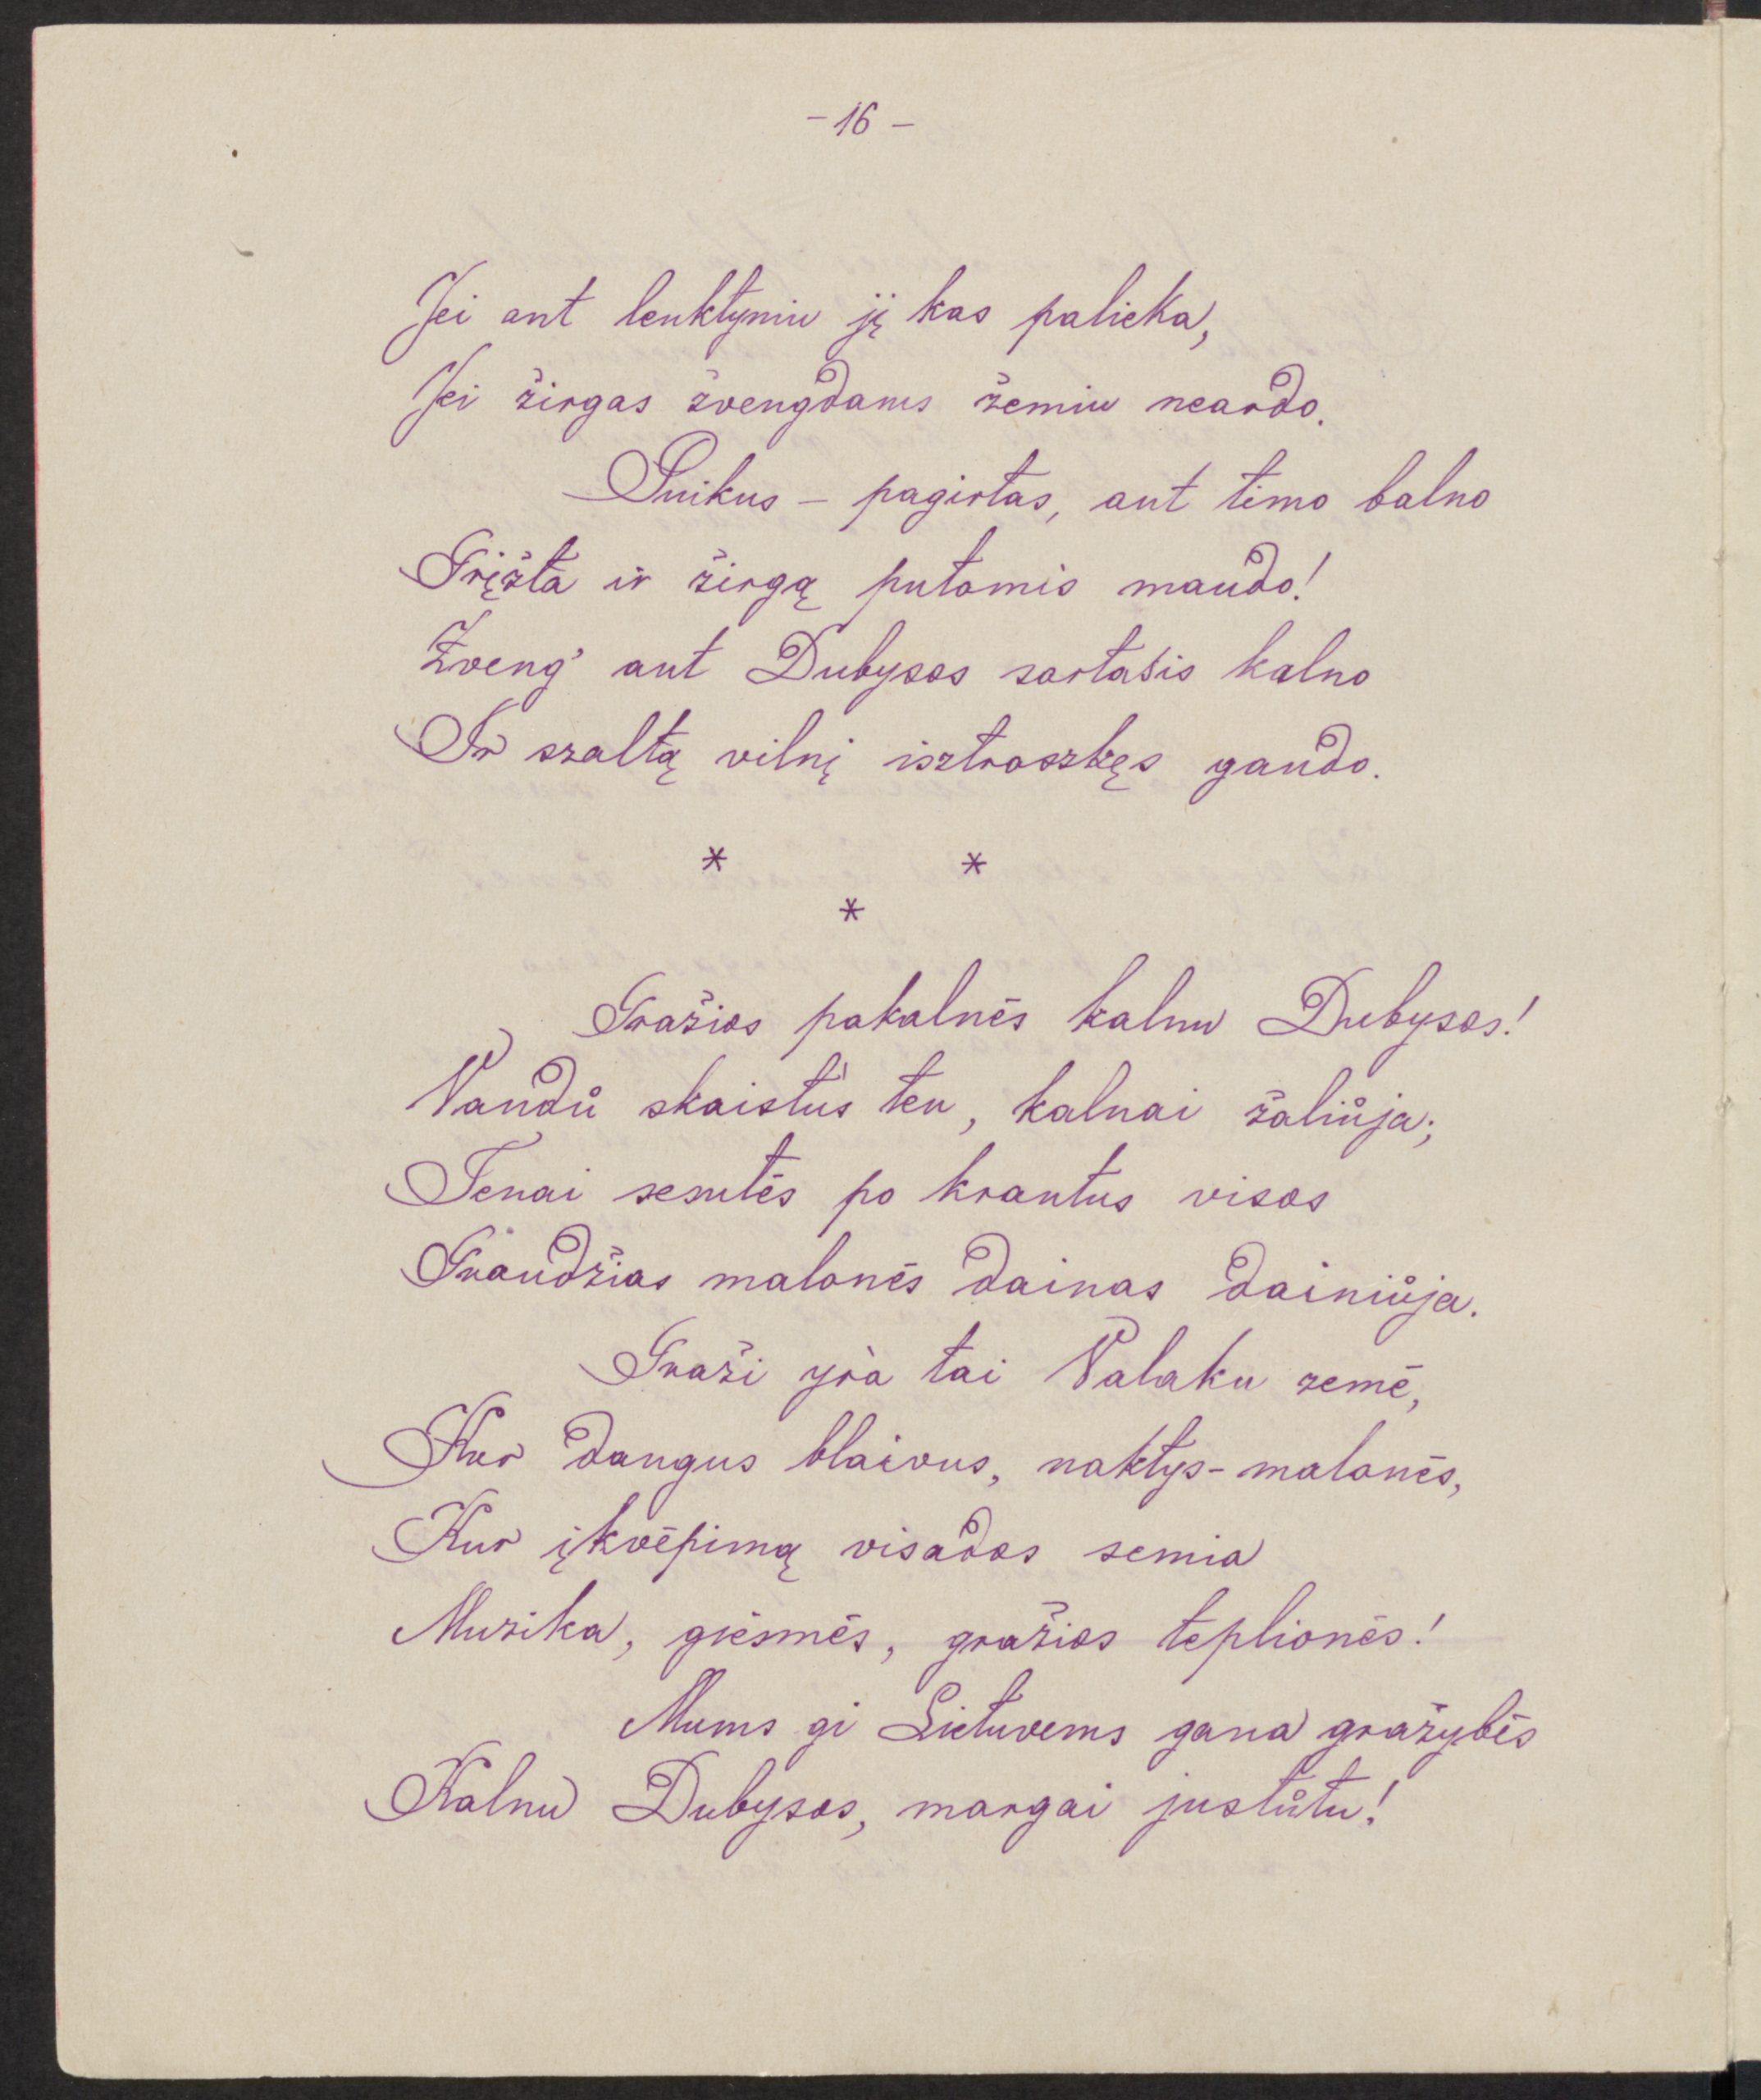 - 16 -
Jei ant lenktyniu jį kas palieka,
Jei žirgas žvengdams žemiu neardo.
Puikus - pagirtas, ant timo balno
Grįžta ir žirgą putomis maudo!
Žveng' ant Dubysos sartasis kalno
Ir szaltą vilnį isztroszkęs gaudo.
* *
*
Gražios pakalnės kalnu Dubysos!
Vandů skaistus ten, kalnai žaliůja;
Tenai sesutės po krantus visos
Graudžias malonės dainas dainiůja.
Graži yra tai Valaku žemė,
Kur dangus blaivus, naktys-malonės,
Kur įkvėpimą visados semia
Muzika, giesmės, gražios teplionės!
Mums gi Lietuvems gana gražybės
Kalnu Dubysos, margai justůtu!